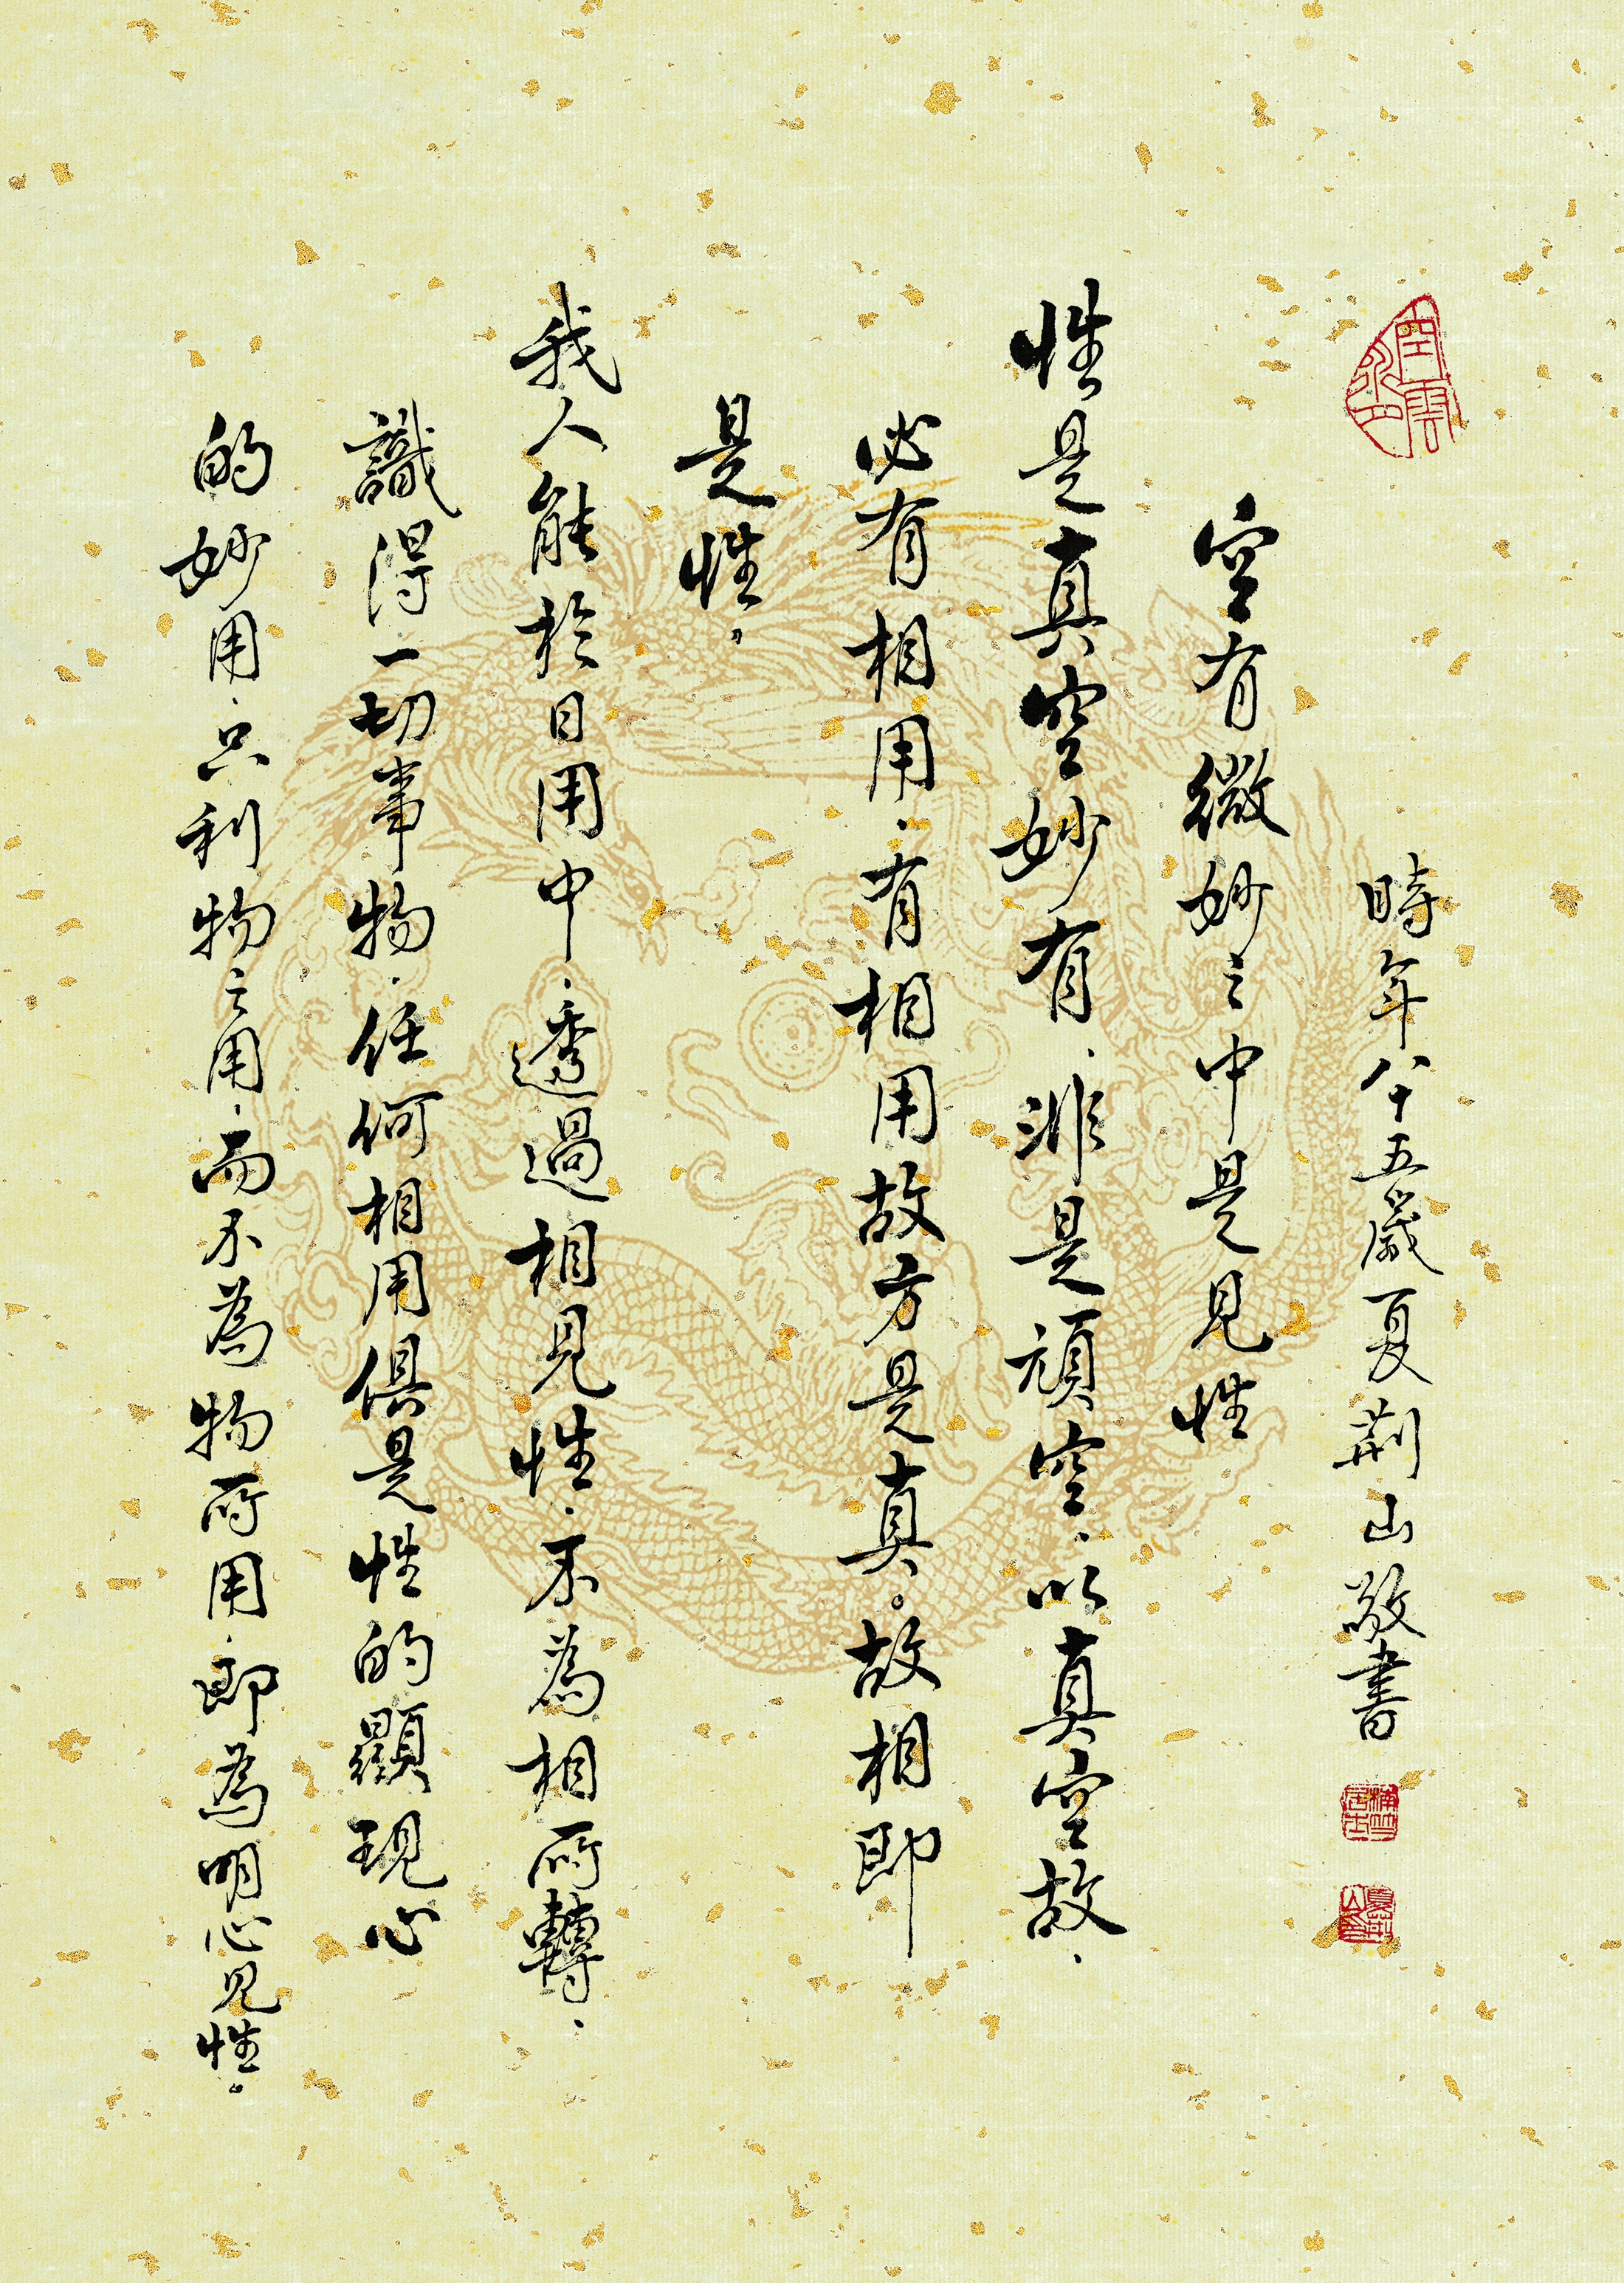 時年八十五歲夏荊山敬書
空有微妙之中是見性
性是真空妙有、非是頑空、以真空故、
必有相用、有相用故方是真。故相即
是性。
我人能於日用中、透過相見性、不為相所轉、
識得一切事物、任何相用俱是性的顯現心
的妙用、只利物之用、而不為物所用、即為明心見性。